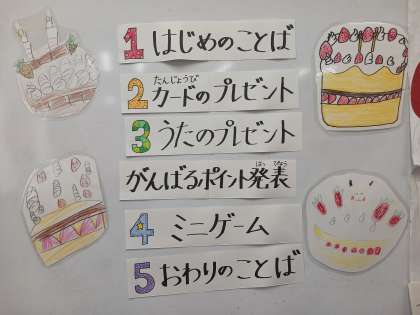 1 はじめのことば
たんじょうび
2 カードのプレゼント
3 うたのプレゼント
はっ ぴょう
がんばるポイント発表
4 ミニゲーム
5 おわりのことば